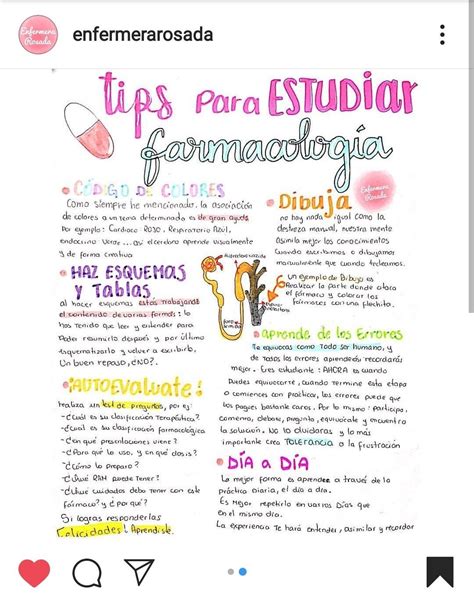 Enfermera
Rosada
enfermerarosada
tips para ESTUDIAR
farmacología
Enfermera
Rosada
CÓDIGO DE COLORES
Como siempre he mencionado, la asociación
de colores a un tema determinado es de gran ayuda
Por ejemplo: Cardiaco ROJO, Respiratorio Azul,
endocrino Verde ... así el cerebro aprende visualmente
y de forma creativa
HAZ ESQUEMAS
y Tablas
Al hacer esquemas estás trabajando
el contenido de varias formas: lo
has tenido que leer y entender para
Poder resumirlo después y por último
esquematizarlo y volver a escribirlo.
Un buen repaso, ¿NO?.
¡AUTOEVALUATE!
Realiza un test de preguntas, por ej:
-¿Cuál es su clasificación Terapéutica?
-¿Cuál es su clasificación farmacológica
-¿En qué presentaciones viene?
-¿Para qué lo uso, y en qué dosis?
-¿Cómo lo preparo?
-¿Qué RAM puede Tener?
-¿Qué cuidados debo Tener con este
Fármaco? y ¿por qué?
Si logras responderlas
Felicidades! Aprendiste.
Dibuja
no hay nada igual como la
destreza manual, nuestra mente
Asimila mejor los conocimientos
Cuando escribimos o dibujamos
manualmente que cuando tecleamos.
Un ejemplo de Dibujo es
Realizar la parte donde actúa
el fármaco y colorar los
fármacos con flechita.
aprende de los Errores
Te equivocas como todo ser humano, y
de Todos los errores aprendemos recordarás
mejor. Eres estudiante: AHORA es cuando
Puedes equivocarte, cuando termine esta etapa
o comiences con prácticas, los errores puede que
los pagues bastante caros. Por lo mismo: participa,
comenta, debate, pregunta, equivócate y encuentra
la solución. No lo olvidaras y lo más
importante crea Tolerancia a la frustración
DÍA a DÍA
La mejor forma es aprender a través de lo
práctico diaria, el día a día.
Es mejor repetirlo en varios Días que
en el mismo día.
La experiencia Te hará entender, asimilar y recordar